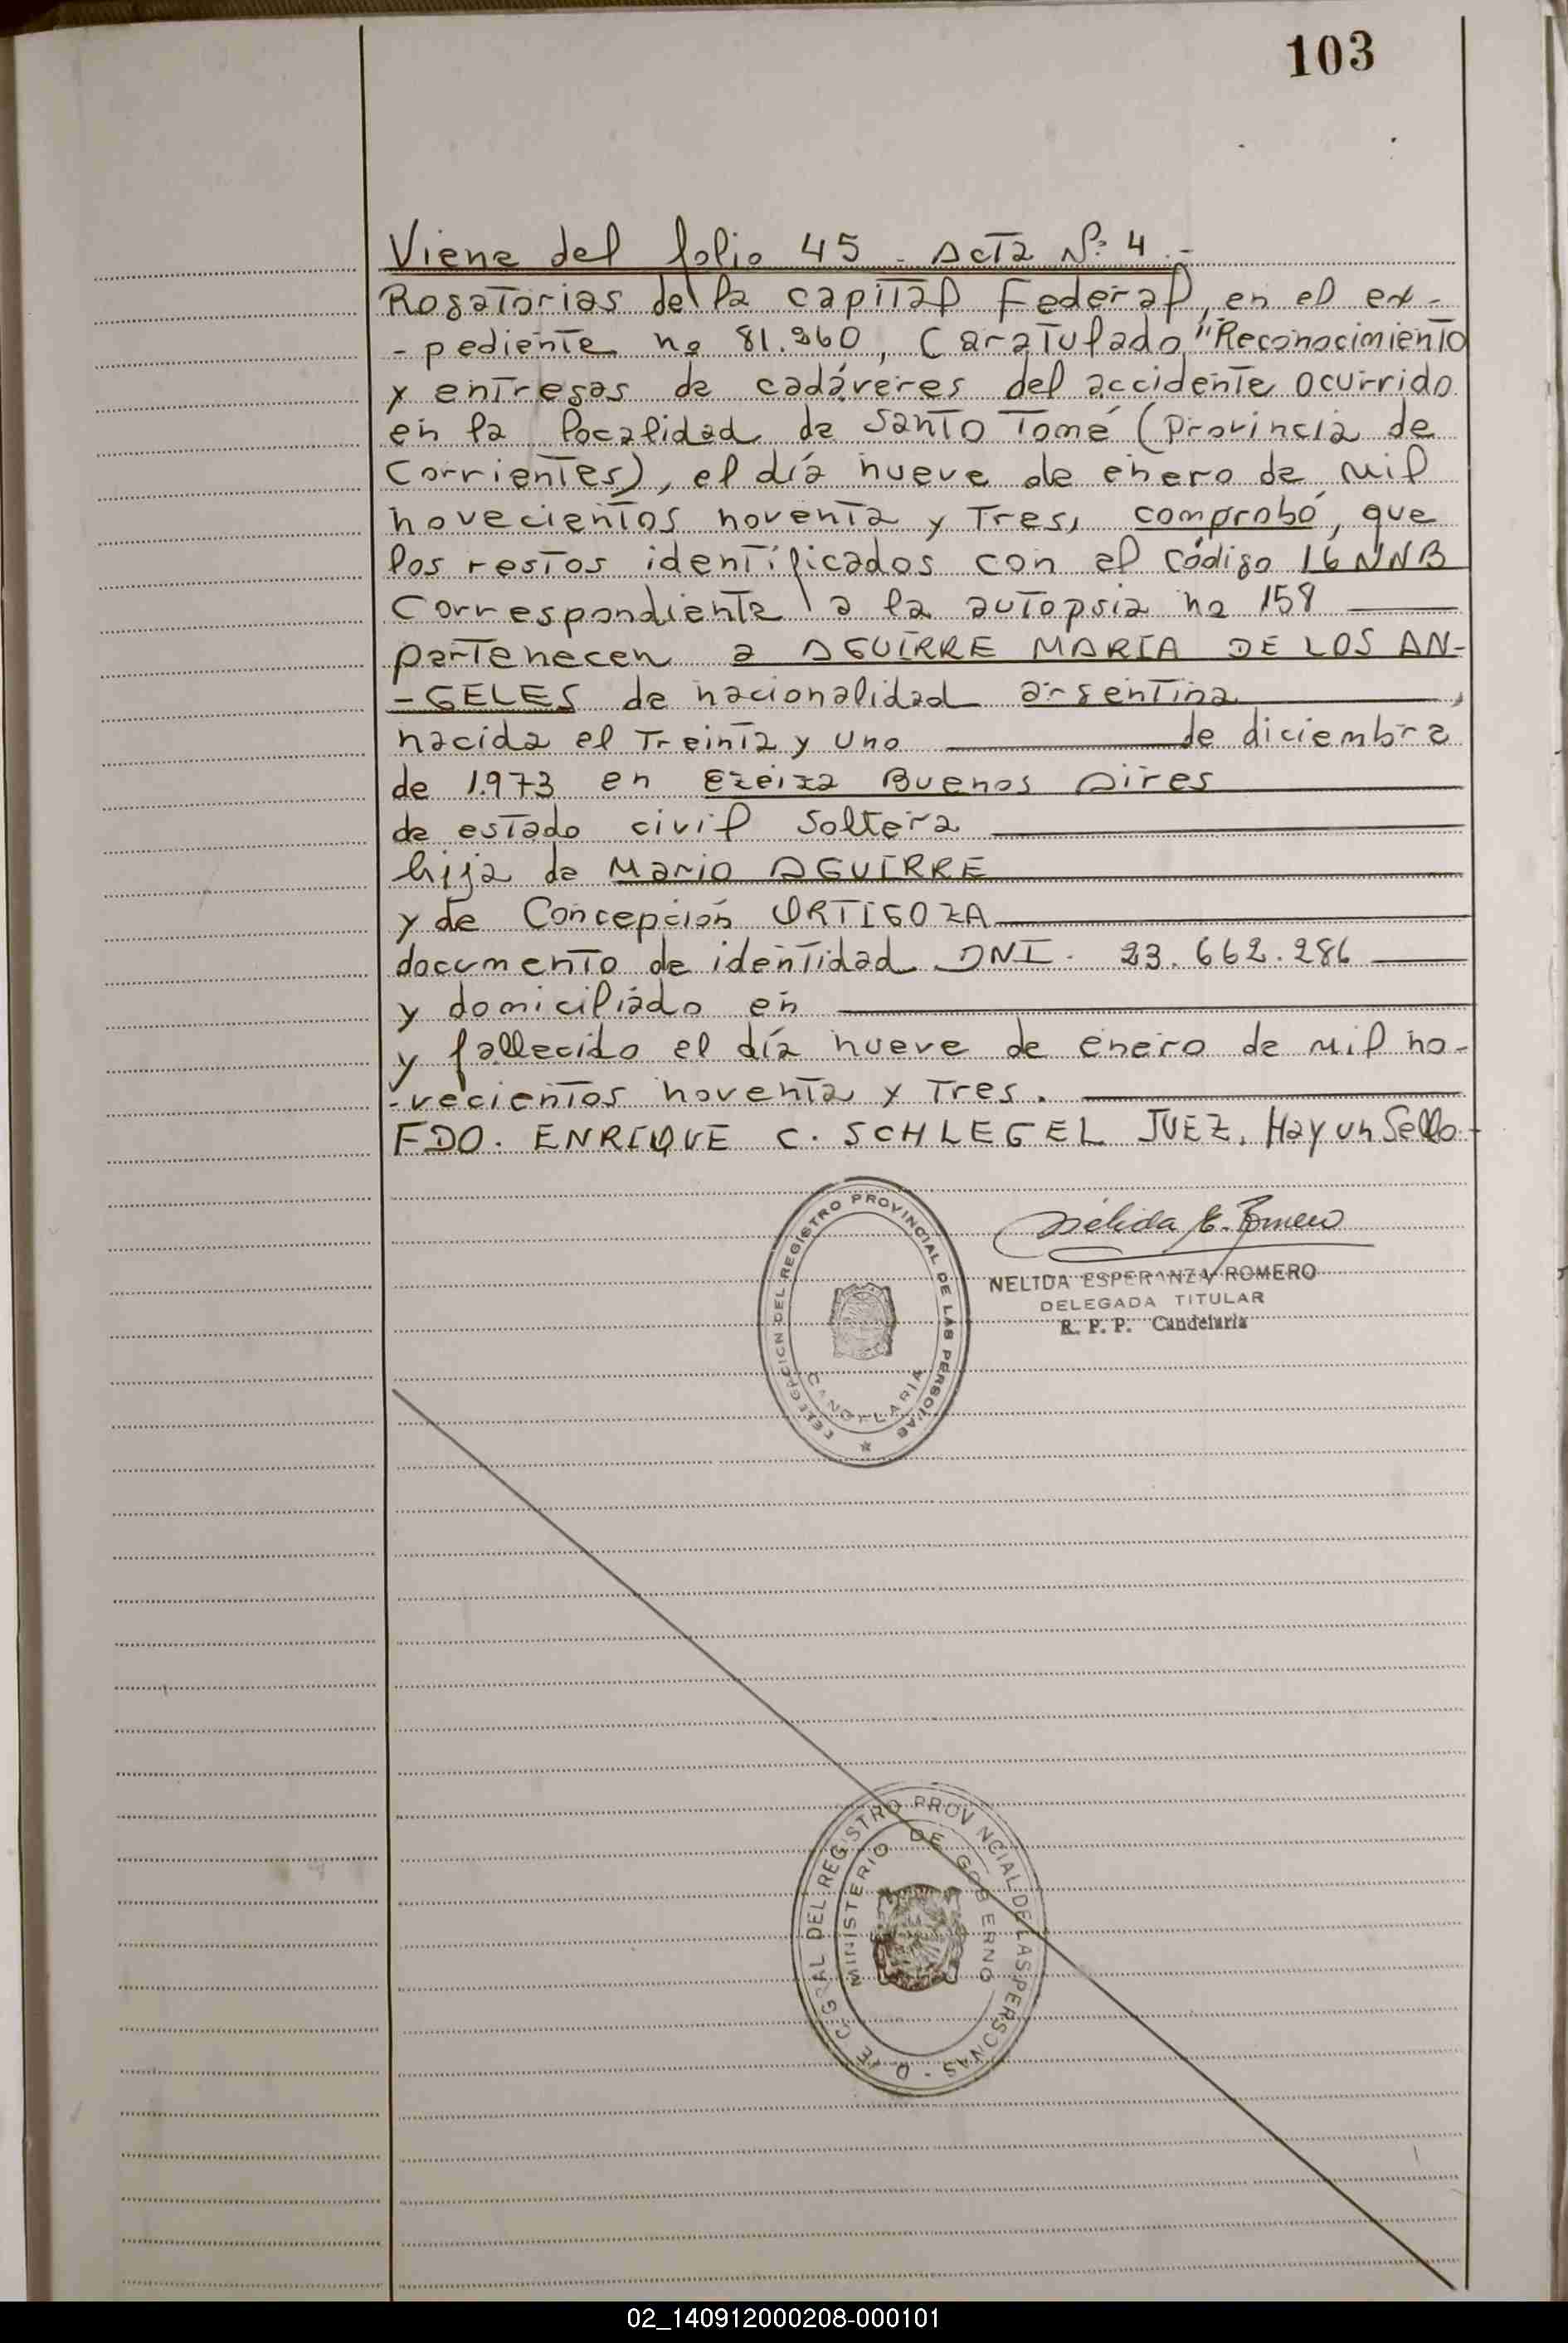 103
Viene del folio 45 - Acta Nº 4.-
Rogatorias de la capital Federal, en el ex-
-pediente no 81.960, Caratulado "Reconocimiento
y entregas de cadáveres del accidente ocurrido
en la localidad de Santo Tomé (Provincia de
Corrientes), el día nueve de enero de mil
novecientos noventa y Tres, comprobó, que
los restos identificados con el código 16 NNB
Correspondiente a la autopsia no 158
pertenecen a AGUIRRE MARIA DE LOS AN-
-GELES de nacionalidad argentina,
nacida el Treinta y uno de diciembre
de 1.973 en Ezeiza Buenos Aires
de estado civil Soltera
hija de Mario AGUIRRE
y de Concepción ORTIGOZA
documento de identidad DNI. 23.662.286
y domiciliado en
y fallecido el día nueve de enero de mil no-
-vecientos noventa y Tres.
FDO. ENRIQUE C. SCHLEGEL JUEZ. Hay un Sello.-
Nélida E. Romero
NELIDA ESPERANZA ROMERO
DELEGADA TITULAR
R. P. P. Candelaria
DELEGACION DEL REGISTRO PROVINCIAL DE LAS PERSONAS
CANDELARIA
GRAL DEL REGISTRO PROVINCIAL DE LAS PERSONAS -
MINISTERIO DE GOBIERNO
02_140912000208-000101